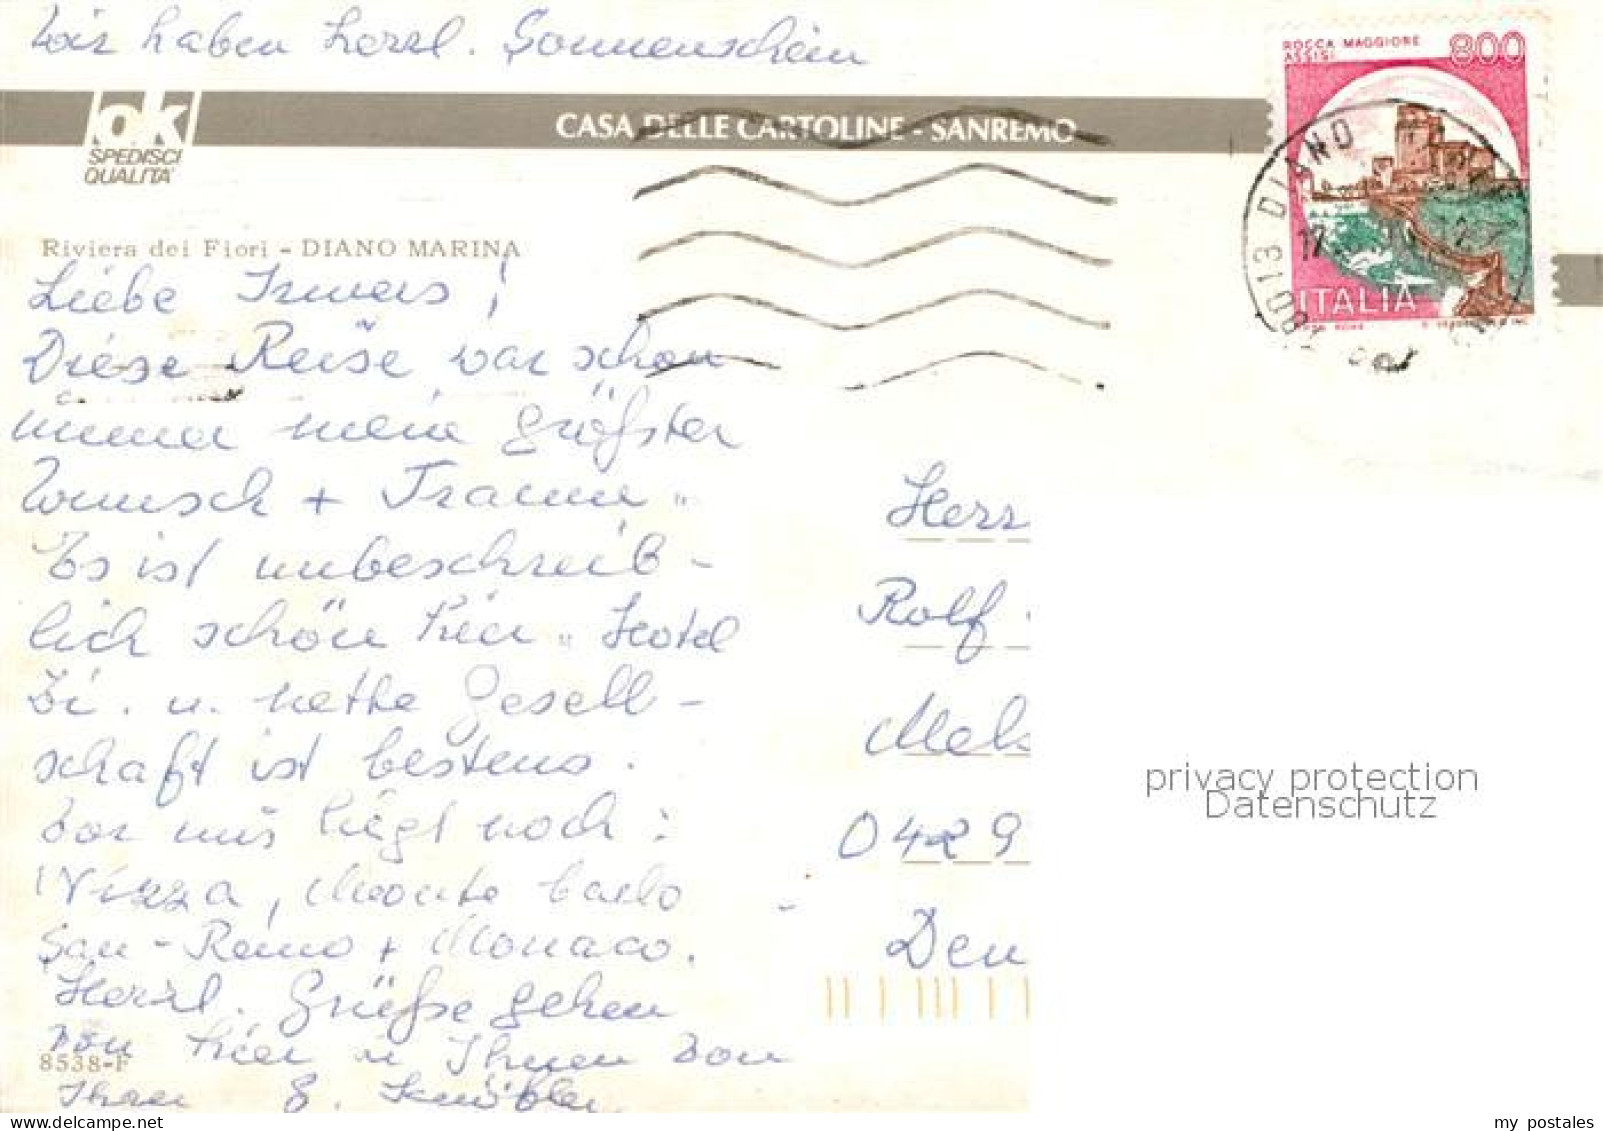 Wir haben herzl. Sonnenschein
ROCCA MAGGIORE
ASSISI
800
ok
SPEDISCI
QUALITA'
CASA DELLE CARTOLINE - SANREMO
18013 DIANO
ITALIA
Riviera dei Fiori - DIANO MARINA
Liebe
Diese Reise war schon
immer mein größter
Wunsch + Traum.
Es ist unbeschreib-
lich schön hier. Hotel
Zi. u. nette Gesell-
schaft ist bestens.
Vor uns liegt noch:
Nizza, Monte Carlo
San-Remo + Monaco.
Herzl. Grüße gehen
von hier zu Ihnen von
8538-F
Ihrer
Herr
Rolf
0429
privacy protection
Datenschutz
my postales